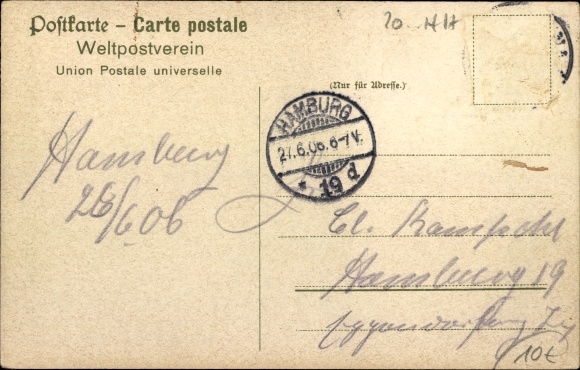 Postkarte – Carte postale
Weltpostverein
Union Postale universelle
20.
(Nur für Adresse.)
HAMBURG
27.6.06.6-7V.
* 19 d
Hamburg
26/6 06
Hamburg 19
10€